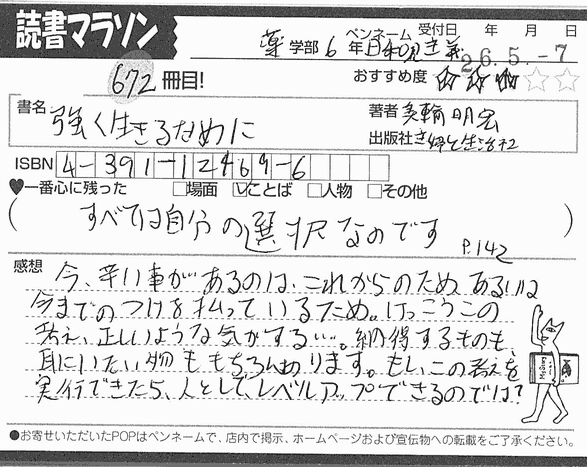 読書マラソン
薬 学部 6 年 ペンネーム 日和見主義 受付日 年 月 日
26.5.-7
672 冊目!
おすすめ度 ★★★☆☆
書名 強く生きるために
著者 美輪明宏
出版社 主婦と生活社
ISBN 4-391-12469-6
♥一番心に残った □場面 ☑ことば □人物 □その他
(すべては自分の選択なのです P.142)
感想 今、辛い事があるのは、これからのため、あるいは
今までのつけを払っているため。けっこうこの
考え、正しいような気がする…。納得するものも、
耳にいたい物ももちろんあります。もし、この考えを
実行できたら、人として、レベルアップできるのでは?
●お寄せいただいたPOPはペンネームで、店内で掲示、ホームページおよび宣伝物への転載をご了承ください。